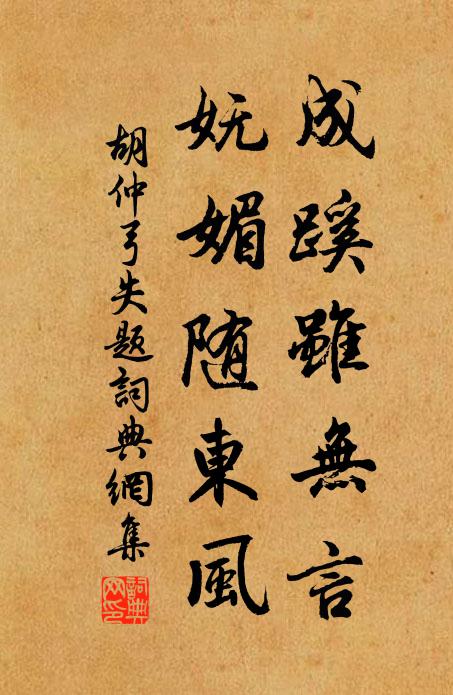 成蹊雖無言
妩媚随東風
胡仲弓失题詞典網集
詞典网印